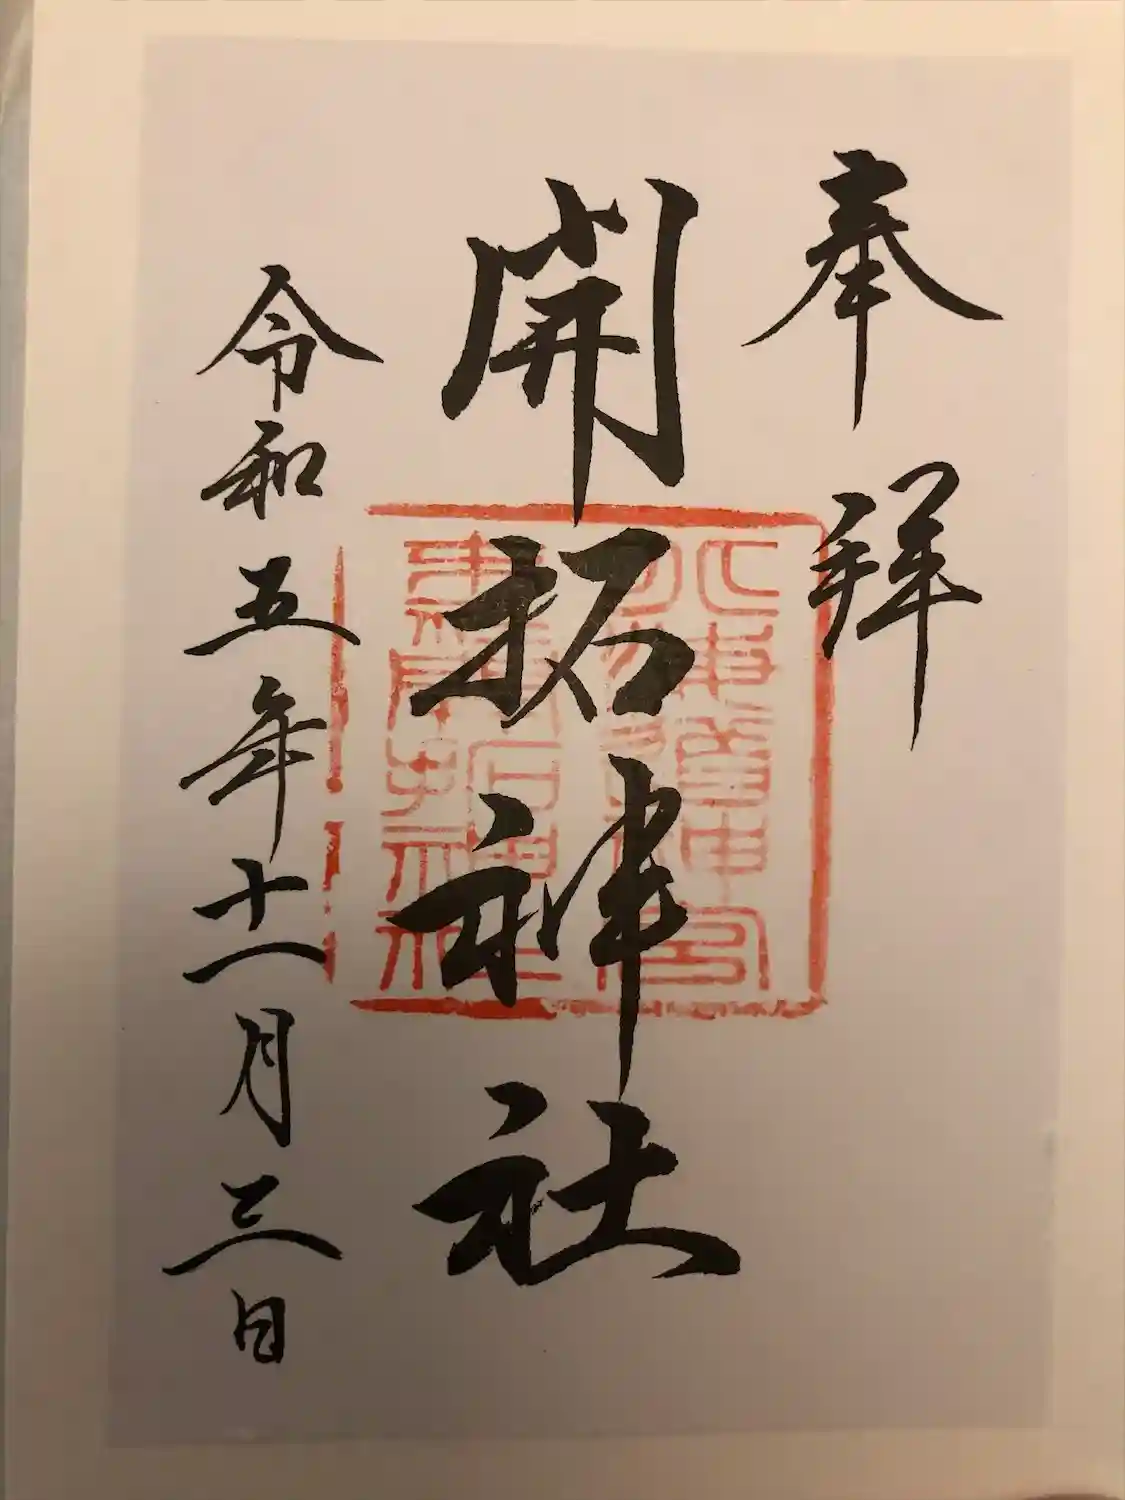 奉拝
開拓神社
北海道神宮
末社開拓神社
令和五年十一月三日